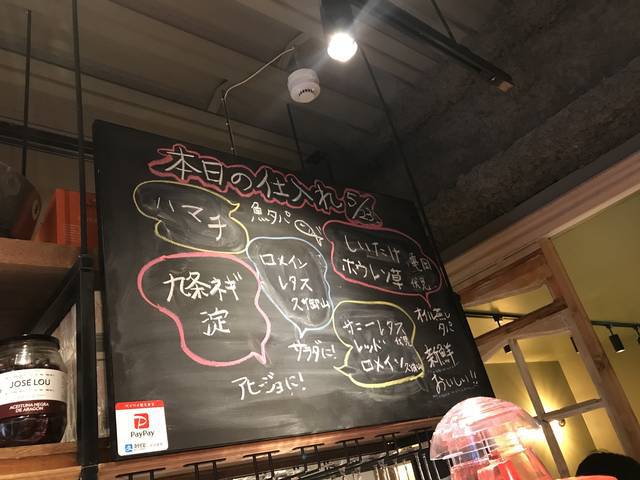 本日の仕入れ 5/3
ハマチ
魚タパ
ロメイン
レタス
久御山
しいたけ
ホウレン草
伏見
九条ネギ
淀
サラダに!
アヒージョに!
サニーレタス
レッド
ロメイン
久御山
オイル蒸し
タパ
新鮮
おいしい!!
PayPay
JOSÉ LOU
ACEITUNA NEGRA
DE ARAGÓN